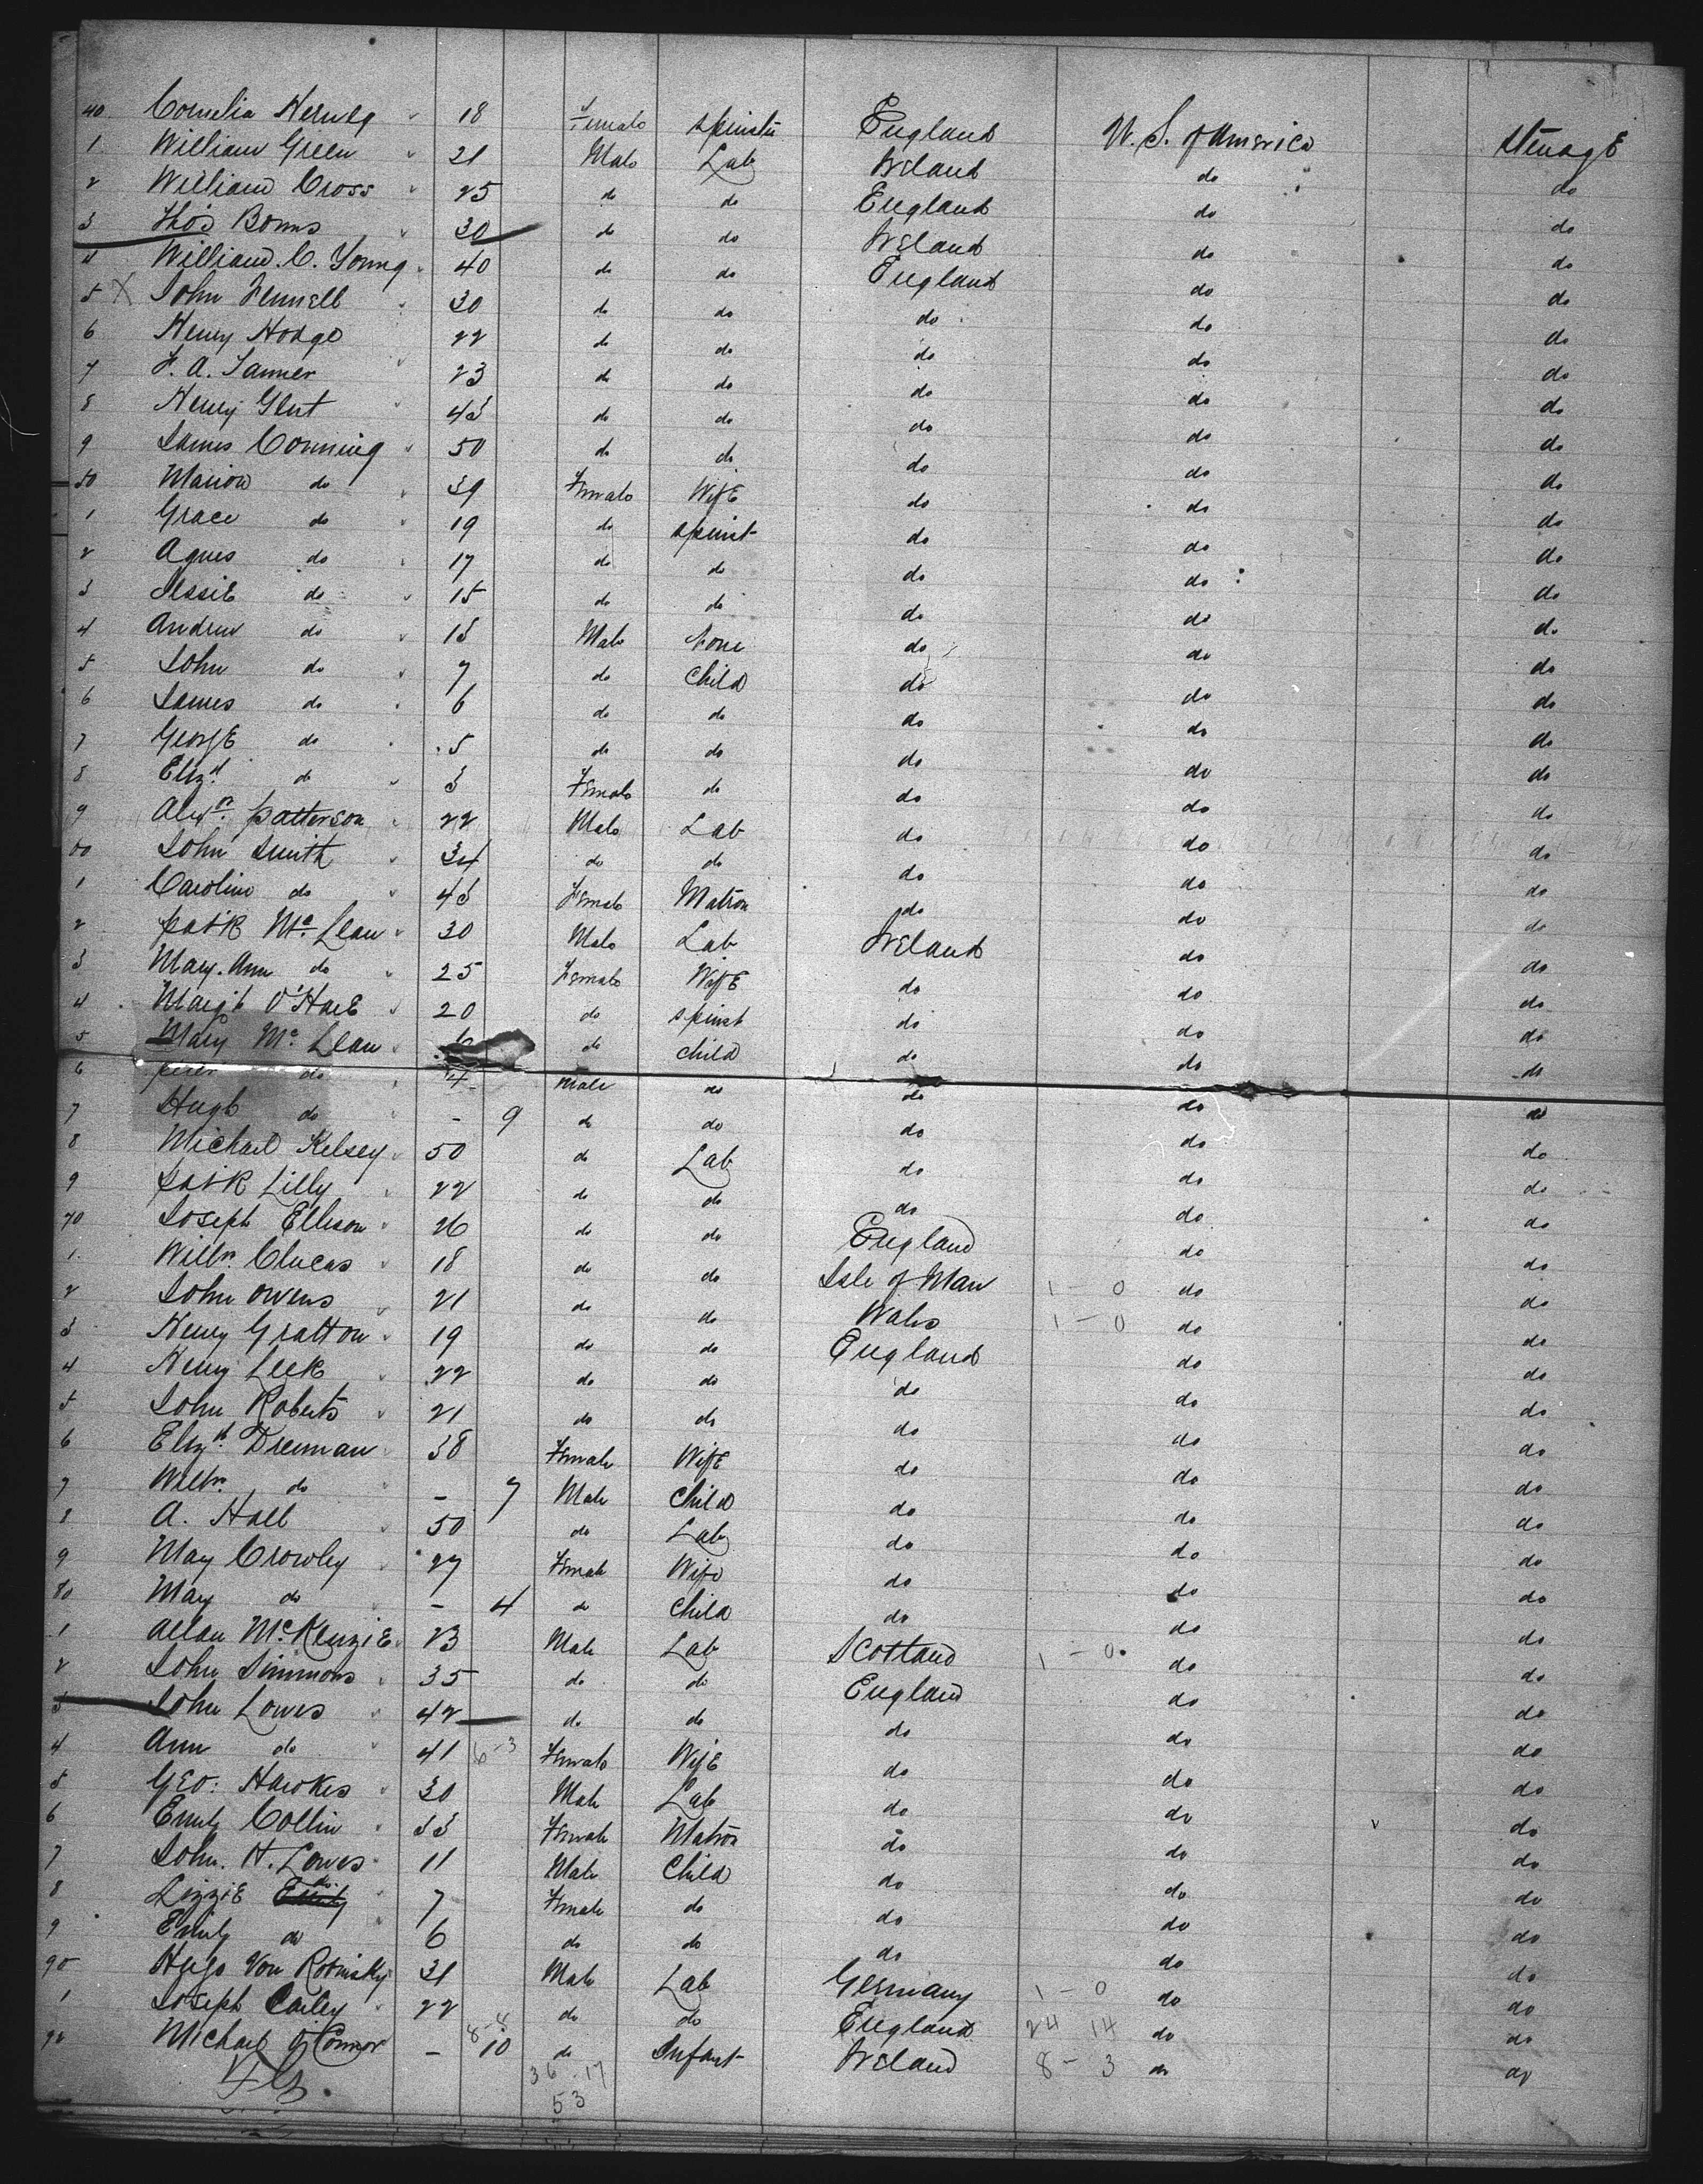 40 Cornelia 18 Female Spinster England U. S. of America Steerage
1 William Green 21 Male Lab Ireland do do
2 William Cross 25 do do England do do
3 Thos 30 do do Ireland do do
4 William. C. Young 40 do do England do do
5 X John Fennell 30 do do do do do
6 Henry Hodge 22 do do do do do
7 F. A. Tanner 23 do do do do do
8 Henry 43 do do do do do
9 James Conning 50 do do do do do
50 Marion do 39 Female Wife do do do
1 Grace do 19 do Spinst do do do
2 Agnes do 17 do do do do do
3 Jessie do 15 do do do do do
4 Andrew do 13 Male None do do do
5 John do 7 do Child do do do
6 James do 6 do do do do do
7 George do 5 do do do do do
8 Elizth do 3 Female do do do do
9 Alexr. Patterson 22 Male Lab do do do
60 John Smith 34 do do do do do
1 Caroline do 43 Female Matron do do do
2 Patk McLean 30 Male Lab Ireland do do
3 Mary. Ann do 25 Female Wife do do do
4 Margt O'Hare 20 do Spinst do do do
5 Mary McLean do Child do do do
6 Peter do 4 Male do do do do
7 Hugh do - 9 do do do do do
8 Michael Kelsey 50 do Lab do do do
9 Patk Lilly 22 do do do do do
70 Joseph Ellison 26 do do England do do
1. Willm. Clucas 18 do do Isle of Man 1 - 0 do do
2 John Owens 21 do do Wales 1 - 0 do do
3 Henry Gratton 19 do do England do do
4 Henry Leek 22 do do do do do
5 John Roberts 21 do do do do do
6 Elizth. Drennan 38 Female Wife do do do
7 Willm. do - 7 Male Child do do do
8 A. Hall 50 do Lab do do do
9 Mary Crowley 27 Female Wife do do do
80 Mary do - 4 do Child do do do
1 Allan McKenzie 23 Male Lab Scotland 1 - 0 do do
2 John Simmons 35 do do England do do
3 John Lowes 42 do do do do do
4 Ann do 41 6-3 Female Wife do do do
5 Geo: Hawkes 30 Male Lab do do do
6 Emily Collin 33 Female Matron do do do
7 John. H. Lowes 11 Male Child do do do
8 Lizzie Emily do 7 Female do do do do
9 Emily do 6 do do do do do
90 Hugo Von 31 Male Lab Germany 1 - 0 do do
1 Joseph Cailey 22 do do England 24 14 do do
92 Michael O'Connor - 8-8 10 do Infant Ireland 8 - 3 do do
36 - 17
53